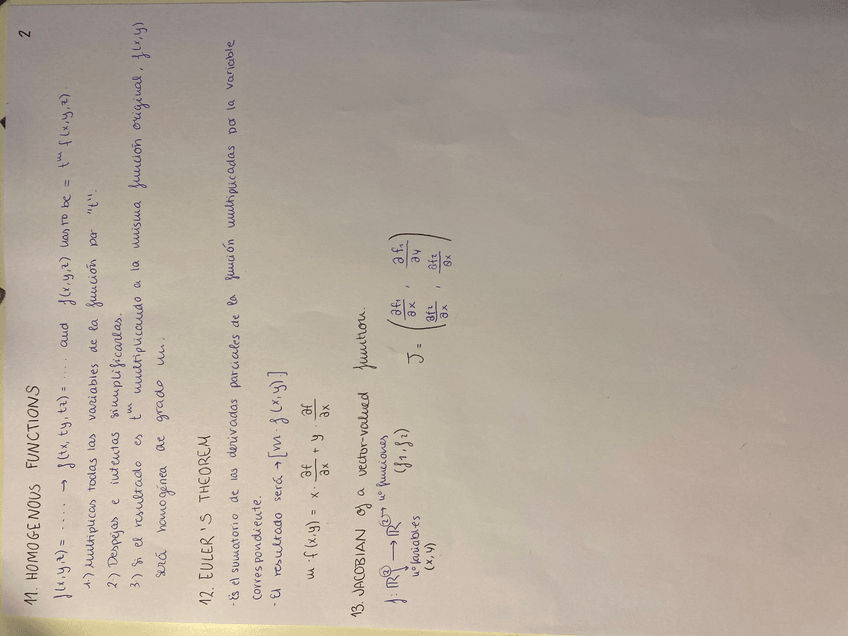 2
11. HOMOGENOUS FUNCTIONS
f(x,y,z) = ..... → f(tx, ty, tz) = .... and f(x,y,z) has to be = t^m f(x,y,z)
1) Multiplicas todas las variables de la función por "t".
2) Despejas e intentas simplificarlas.
3) Si el resultado es t^m multiplicando a la misma función original, f(x,y)
será homogénea de grado m.
12. EULER'S THEOREM
- Es el sumatorio de las derivadas parciales de la función multiplicadas por la variable
correspondiente.
- El resultado será → [m · f(x,y).]
m · f(x,y) = x · ∂f/∂x + y · ∂f/∂x
13. JACOBIAN of a vector-valued function.
f: ℝ² → ℝ² → nº funciones
nº variables (f1, f2)
(x, y)
J = ( ∂f1/∂x , ∂f1/∂y
∂f2/∂x , ∂f2/∂x )